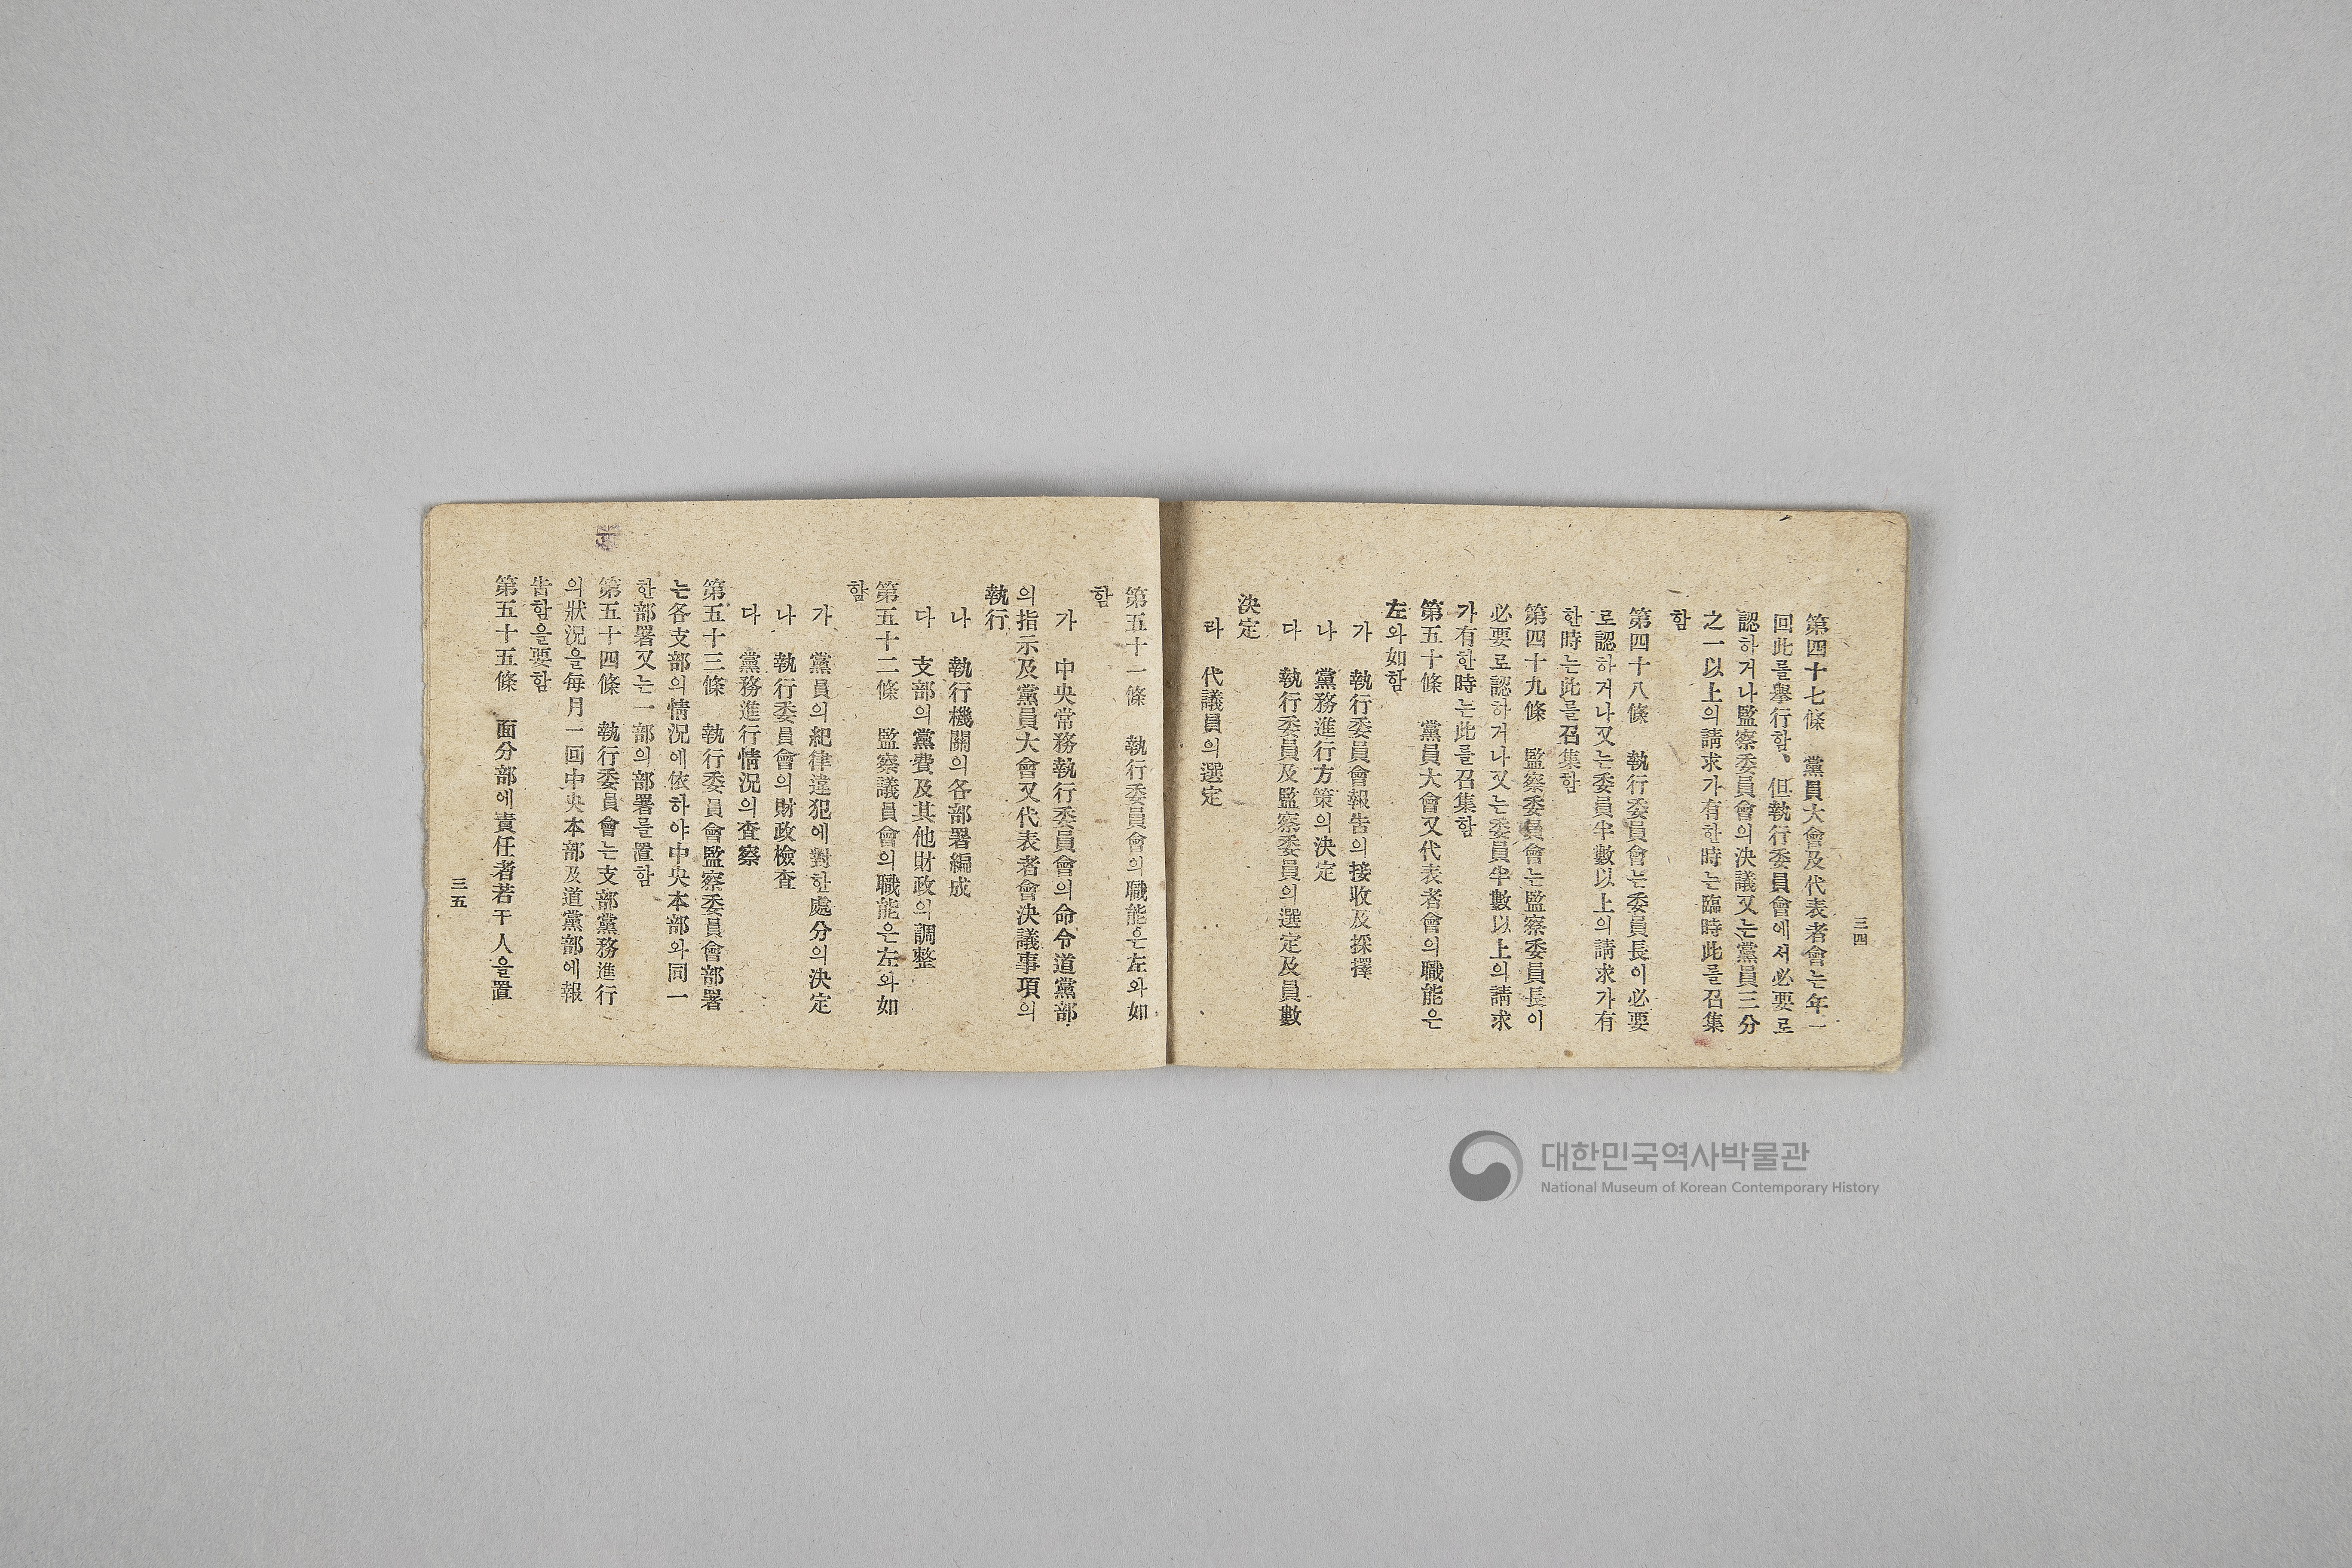 三四
第四十七條　黨員大會及代表者會는年一
回此를擧行함、但執行委員會에서必要로
認하거나監察委員會의決議又는黨員三分
之一以上의請求가有한時는臨時此를召集
함
第四十八條　執行委員會는委員長이必要
로認하거나又는委員半數以上의請求가有
한時는此를召集함
第四十九條　監察委員會는監察委員長이
必要로認하거나又는委員半數以上의請求
가有한時는此를召集함
第五十條　黨員大會又代表者會의職能은
左와如함
가　執行委員會報告의接收及採擇
나　黨務進行方策의決定
다　執行委員及監察委員의選定及員數
決定
라　代議員의選定
第五十一條　執行委員會의職能은左와如
함
가　中央常務執行委員會의命令道黨部
의指示及黨員大會又代表者會決議事項의
執行
나　執行機關의各部署編成
다　支部의黨費及其他財政의調整
第五十二條　監察議員會의職能은左와如
함
가　黨員의紀律違犯에對한處分의決定
나　執行委員會의財政檢査
다　黨務進行情況의査察
第五十三條　執行委員會監察委員會部署
는各支部의情況에依하야中央本部와同一
한部署又는一部의部署를置함
第五十四條　執行委員會는支部黨務進行
의狀況을每月一回中央本部及道黨部에報
告함을要함
第五十五條　面分部에責任者若干人을置
三五
대한민국역사박물관
National Museum of Korean Contemporary History